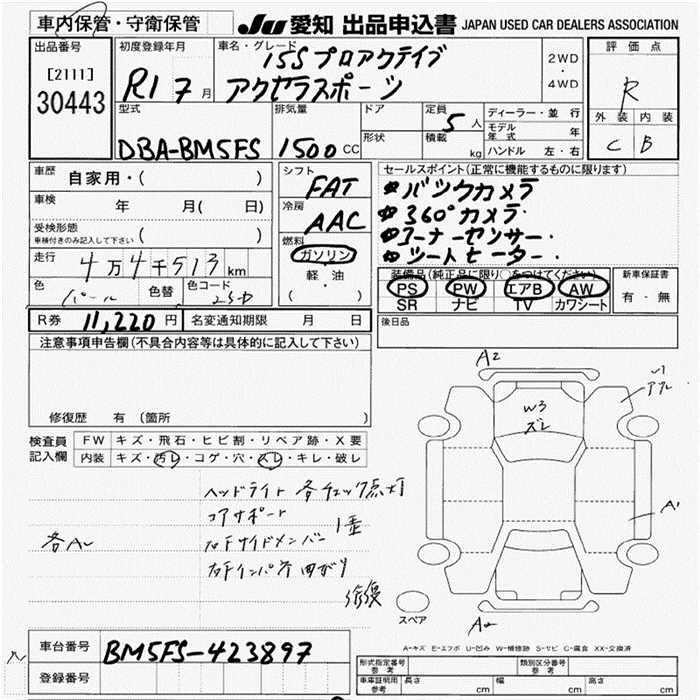 車内保管・守衛保管
JU 愛知 出品申込書 JAPAN USED CAR DEALERS ASSOCIATION
出品番号
[2111]
30443
初度登録年月
R1 7 月
車名・グレード
15S プロアクティブ
アクセラスポーツ
2WD
・
4WD
評価点
R
外装 内装
C B
型式
DBA-BM5FS
排気量
1500 CC
ドア
形状
定員
5 人
積載
kg
ディーラー・並行
モデル年式 年
ハンドル 左・右
車歴
自家用・( )
車検
年 月( 日)
受検形態
車検付きのみ記入して下さい ( )
走行
4万4千513 km
色
パール
色替
色コード
25D
シフト
FAT
冷房
AAC
燃料
ガソリン
軽油
( ・ )
セールスポイント(正常に機能するものに限ります)
バックカメラ
360°カメラ
コーナーセンサー
シートヒーター
装備品(純正品に限り○をつけてください)
PS PW エアB AW
SR ナビ TV カワシート
新車保証書
有・無
後日品
R券 11,220 円
名変通知期限 月 日
注意事項申告欄(不具合内容等は具体的に記入して下さい)
修復歴 有(箇所 )
検査員
記入欄
FW キズ・飛石・ヒビ割・リペア跡・X要
内装 キズ・汚レ・コゲ・穴・スレ・キレ・破レ
ヘッドライト 各チェック点灯
コアサポート
右Fサイドメンバー
右Fインパネ 曲がり
修復
各A〜
A2
W3
ズレ
A1
スペア
A-キズ E-エクボ U-凹み W-補修跡 S-サビ C-腐食 XX-交換済
車台番号
BM5FS-423897
登録番号
形式指定番号
参考
類別区分番号
参考
車庫証明用
参考
長さ cm
幅 cm
高さ cm